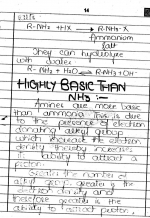 14
R-NH2 + HX → R-NH3 X
Ammonium
salt
They can hydrolyze
with water
R-NH2 + H2O ⇌ R-NH3+OH-
HIGHLY BASIC THAN
NH3 :-
Amines are more basic
than ammonia. This is due
to the presence of electron
donating alkyl group
which increase the electron
density thereby increasing
its ability to attract a
proton.
Greater the number of
alkyl group, greater is the
electron density and
therefore greater is the
ability to attract proton.